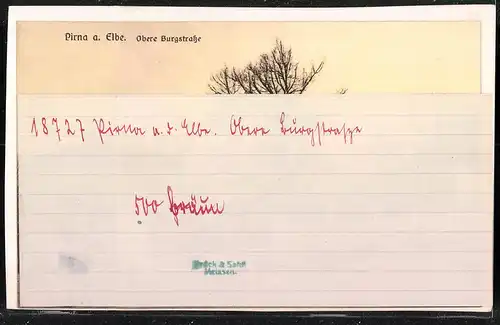 Pirna a. Elbe. Obere Burgstraße
18727 Pirna a. d. Elbe. Obere Burgstrasse
500 braun
Brück & Sohn
Meissen.